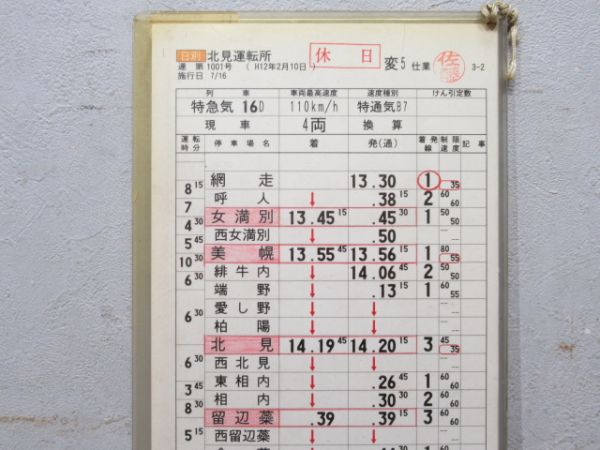 日別 北見運転所 休日 変5 仕業 佐 3-2
運 第 1001号 ( H12年2月10日 )
施行日 7/16
列車 車両最高速度 速度種別 けん引定数
特急気 16D 110km/h 特通気B7
現車 4両 換算
運転時分 停車場名 着 発(通) 着発線 制限速度 記事
網走 13.30 1 35
8 15
呼人 ↓ .38 15 2 60 60
7
女満別 13.45 15 .45 30 1 50 50
4 30
西女満別 ↓ .50 … …
5 45
美幌 13.55 45 13.56 15 1 80 55
10 30
緋牛内 ↓ 14.06 45 2 50 50
6 30
端野 ↓ .13 15 1 60 55
愛し野 ↓ ↓ … …
6 30
柏陽 ↓ ↓ … …
北見 14.19 45 14.20 15 3 45 35
西北見 ↓ ↓ … …
6 30
東相内 ↓ .26 45 1 60 60
3 45
相内 ↓ .30 30 2 60 60
8 30
留辺蘂 .39 .39 15 3 60 60
5 15
西留辺蘂 ↓ ↓ … …